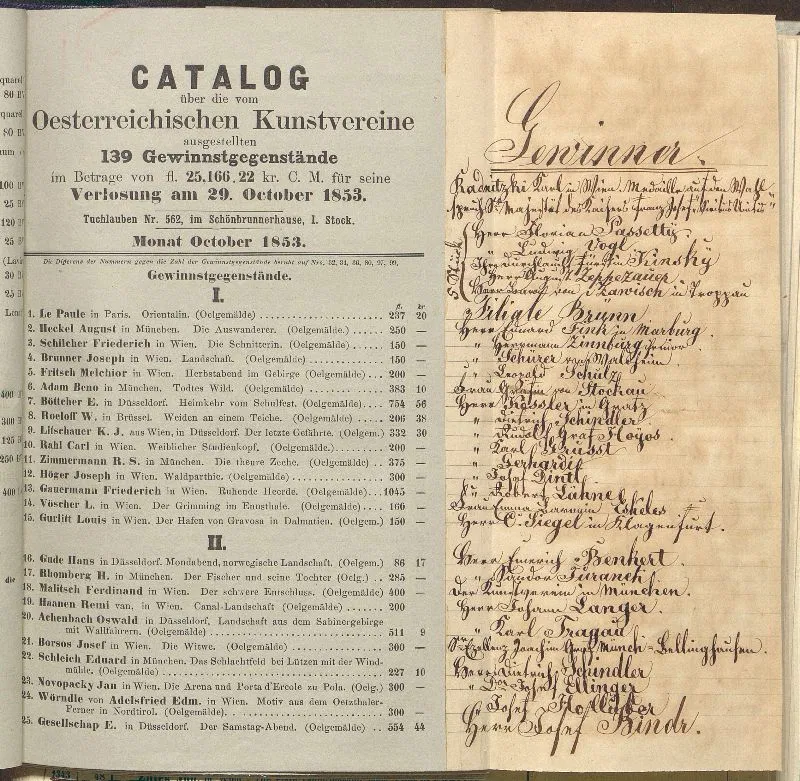 CATALOG
über die vom
Oesterreichischen Kunstvereine
ausgestellten
139 Gewinnstgegenstände
im Betrage von fl. 25.166.22 kr. C. M. für seine
Verlosung am 29. October 1853.
Tuchlauben Nr. 562, im Schönbrunnerhause, I. Stock.
Monat October 1853.
Die Differenz der Nummern gegen die Zahl der Gewinnstgegenstände beruht auf Nrs. 32, 34, 36, 80, 97, 99,
Gewinnstgegenstände.
I.
fl. kr.
1. Le Paule in Paris. Orientalin. (Oelgemälde) 237 20
2. Heckel August in München. Die Auswanderer. (Oelgemälde.) 250 —
3. Schilcher Friederich in Wien. Die Schnitterin. (Oelgemälde) 150 —
4. Brunner Joseph in Wien. Landschaft. (Oelgemälde) 150 —
5. Fritsch Melchior in Wien. Herbstabend im Gebirge (Oelgemälde) 200 —
6. Adam Beno in München. Todtes Wild. (Oelgemälde) 383 10
7. Böttcher E. in Düsseldorf. Heimkehr vom Schulfest. (Oelgemälde) 754 56
8. Roeloff W. in Brüssel. Weiden an einem Teiche. (Oelgemälde) 206 38
9. Litschauer K. J. aus Wien, in Düsseldorf. Der letzte Gefährte. (Oelgem.) 332 30
10. Rahl Carl in Wien. Weiblicher Studienkopf. (Oelgemälde.) 200 —
11. Zimmermann R. S. in München. Die theure Zeche. (Oelgemälde) 375 —
12. Höger Joseph in Wien. Waldparthie. (Oelgemälde) 300 —
13. Gauermann Friederich in Wien. Ruhende Heerde. (Oelgemälde) 1045 —
14. Vöscher L. in Wien. Der Grimming im Ennsthale. (Oelgemälde) 166 —
15. Gurlitt Louis in Wien. Der Hafen von Gravosa in Dalmatien. (Oelgem.) 150 —
II.
16. Gude Hans in Düsseldorf. Mondabend, norwegische Landschaft. (Oelgem.) 86 17
17. Rhomberg H. in München. Der Fischer und seine Tochter (Oelg.) 285 —
18. Malitsch Ferdinand in Wien. Der schwere Entschluss. (Oelgemälde) 400 —
19. Haanen Remi van, in Wien. Canal-Landschaft (Oelgemälde) 200
20. Achenbach Oswald in Düsseldorf, Landschaft aus dem Sabinergebirge
mit Wallfahrern. (Oelgemälde) 511 9
21. Borsos Josef in Wien. Die Witwe. (Oelgemälde) 300 —
22. Schleich Eduard in München. Das Schlachtfeld bei Lützen mit der Wind-
mühle. (Oelgemälde) 227 10
23. Novopacky Jan in Wien. Die Arena und Porta d'Ercole zu Pola. (Oelg.) 300 —
24. Wörndle von Adelsfried Edm. in Wien. Motiv aus dem Oetzthaler-
Ferner in Nordtirol. (Oelgemälde). 300 —
25. Gesellschap E. in Düsseldorf. Der Samstag-Abend. (Oelgemälde) 554 44
Gewinner.
Karl in Wien. Medaille auf den Wahl-
spruch Sr Majestät des Kaisers Franz Josef
5 Stück
Herr Florian Passetty
" Ludwig Vogl
Ihre Durchlaucht Fürstin Kinsky
Herr August Zeppezauer
von Zawisch in Troppau
Filiale Brünn
Herr Eduard Fink in Marburg.
" Herrmann Zinnburg
" Schürer von Waldheim.
" Leopold Schulz
Frau Gräfin von Stockau
Herr Kessler in Gratz
" Dietrich Schindler.
" Rudolf Graf Hoyos.
" Karl
" Gerhardit
" Josef Zintl
" Robert Lahne
Frau Emma Baronin Eskeles
Herr C. Siegel in Klagenfurt.
Herr Emerich Benkert.
" Sandor Turanek
Der Kunstverein in München.
Herr Johann Langer.
" Karl Tragau
Sr Exellenz Joachim Graf Münch-Bellinghausen.
Herr Dietrich Schindler
" Dr Josef Ellinger
" Josef
Herr Josef Bindr.